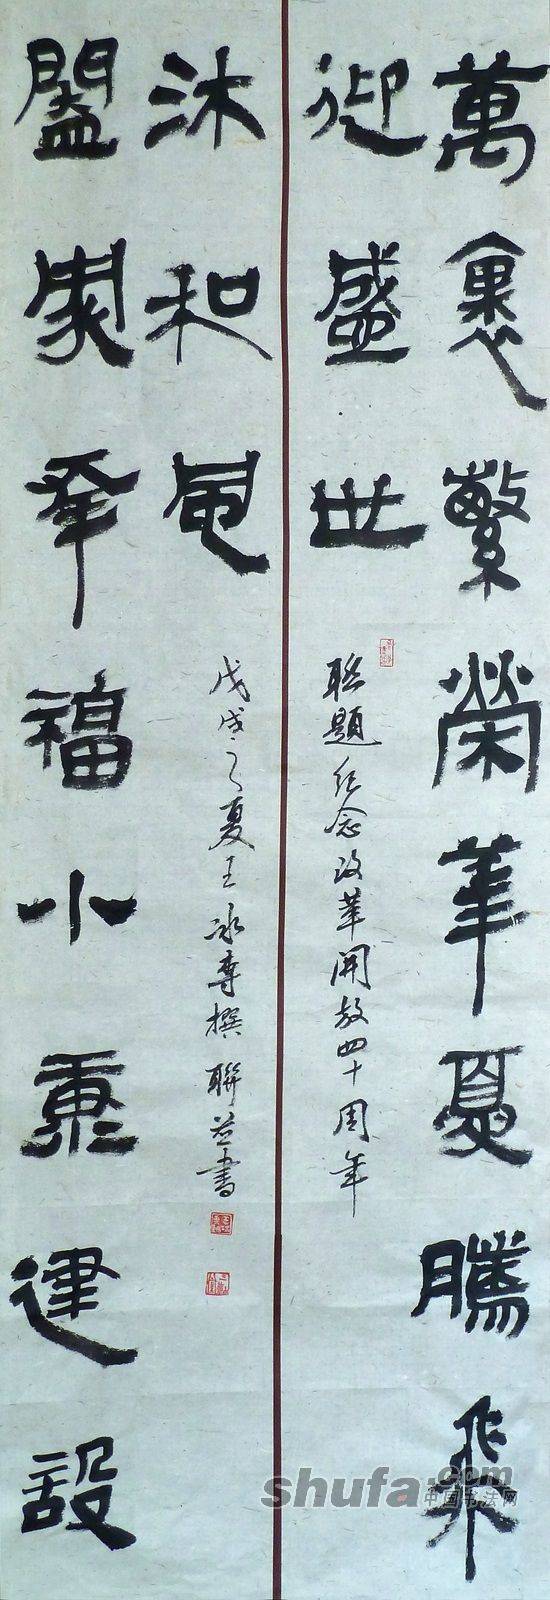 萬裏繁榮華夏騰飛
迎盛世
聯題紀念改革開放四十周年
闔家幸福小康建設
沐和風
戊戌之夏王冰尊撰聯並書
shufa.com
中国书法网